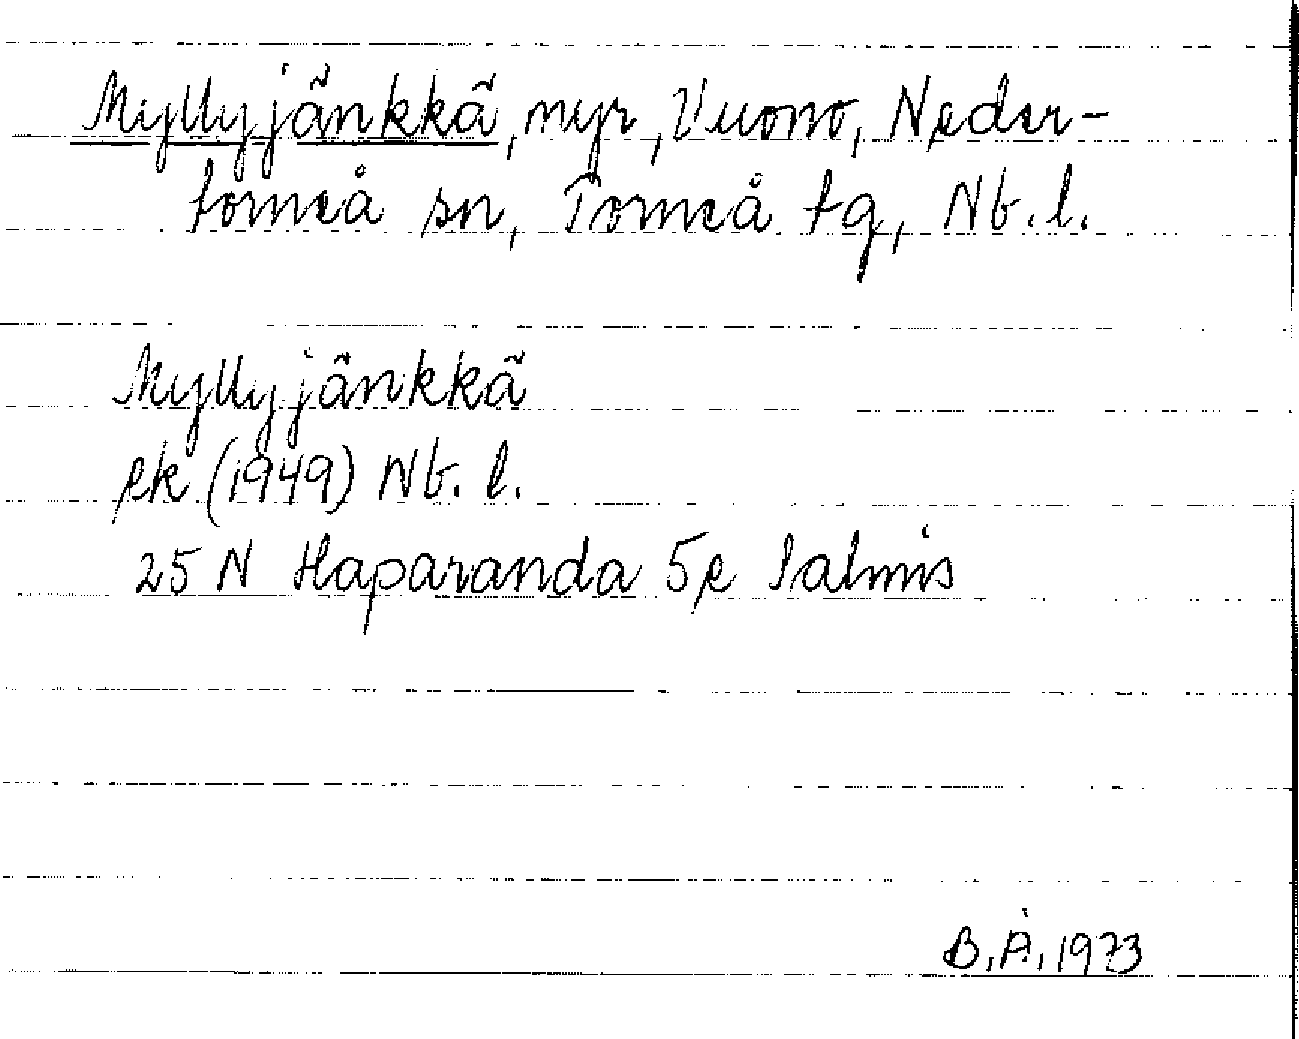 Myllyjänkkä, myr, Vuono, Neder-
torneå sn, Torneå tg, Nb. l.
Myllyjänkkä
ek (1949) Nb. l.
25 N Haparanda 5e Salmis
B.Å. 1973